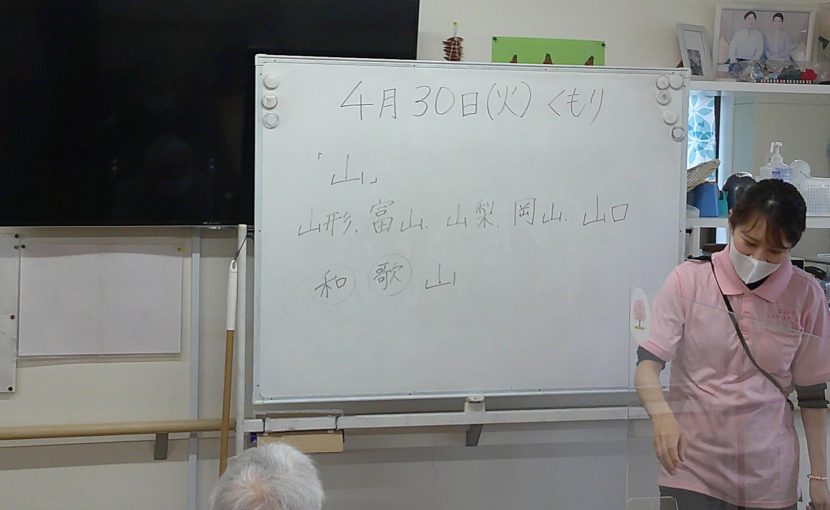 4月30日(火)くもり
「山」
山形、富山、山梨、岡山、山口
和歌山